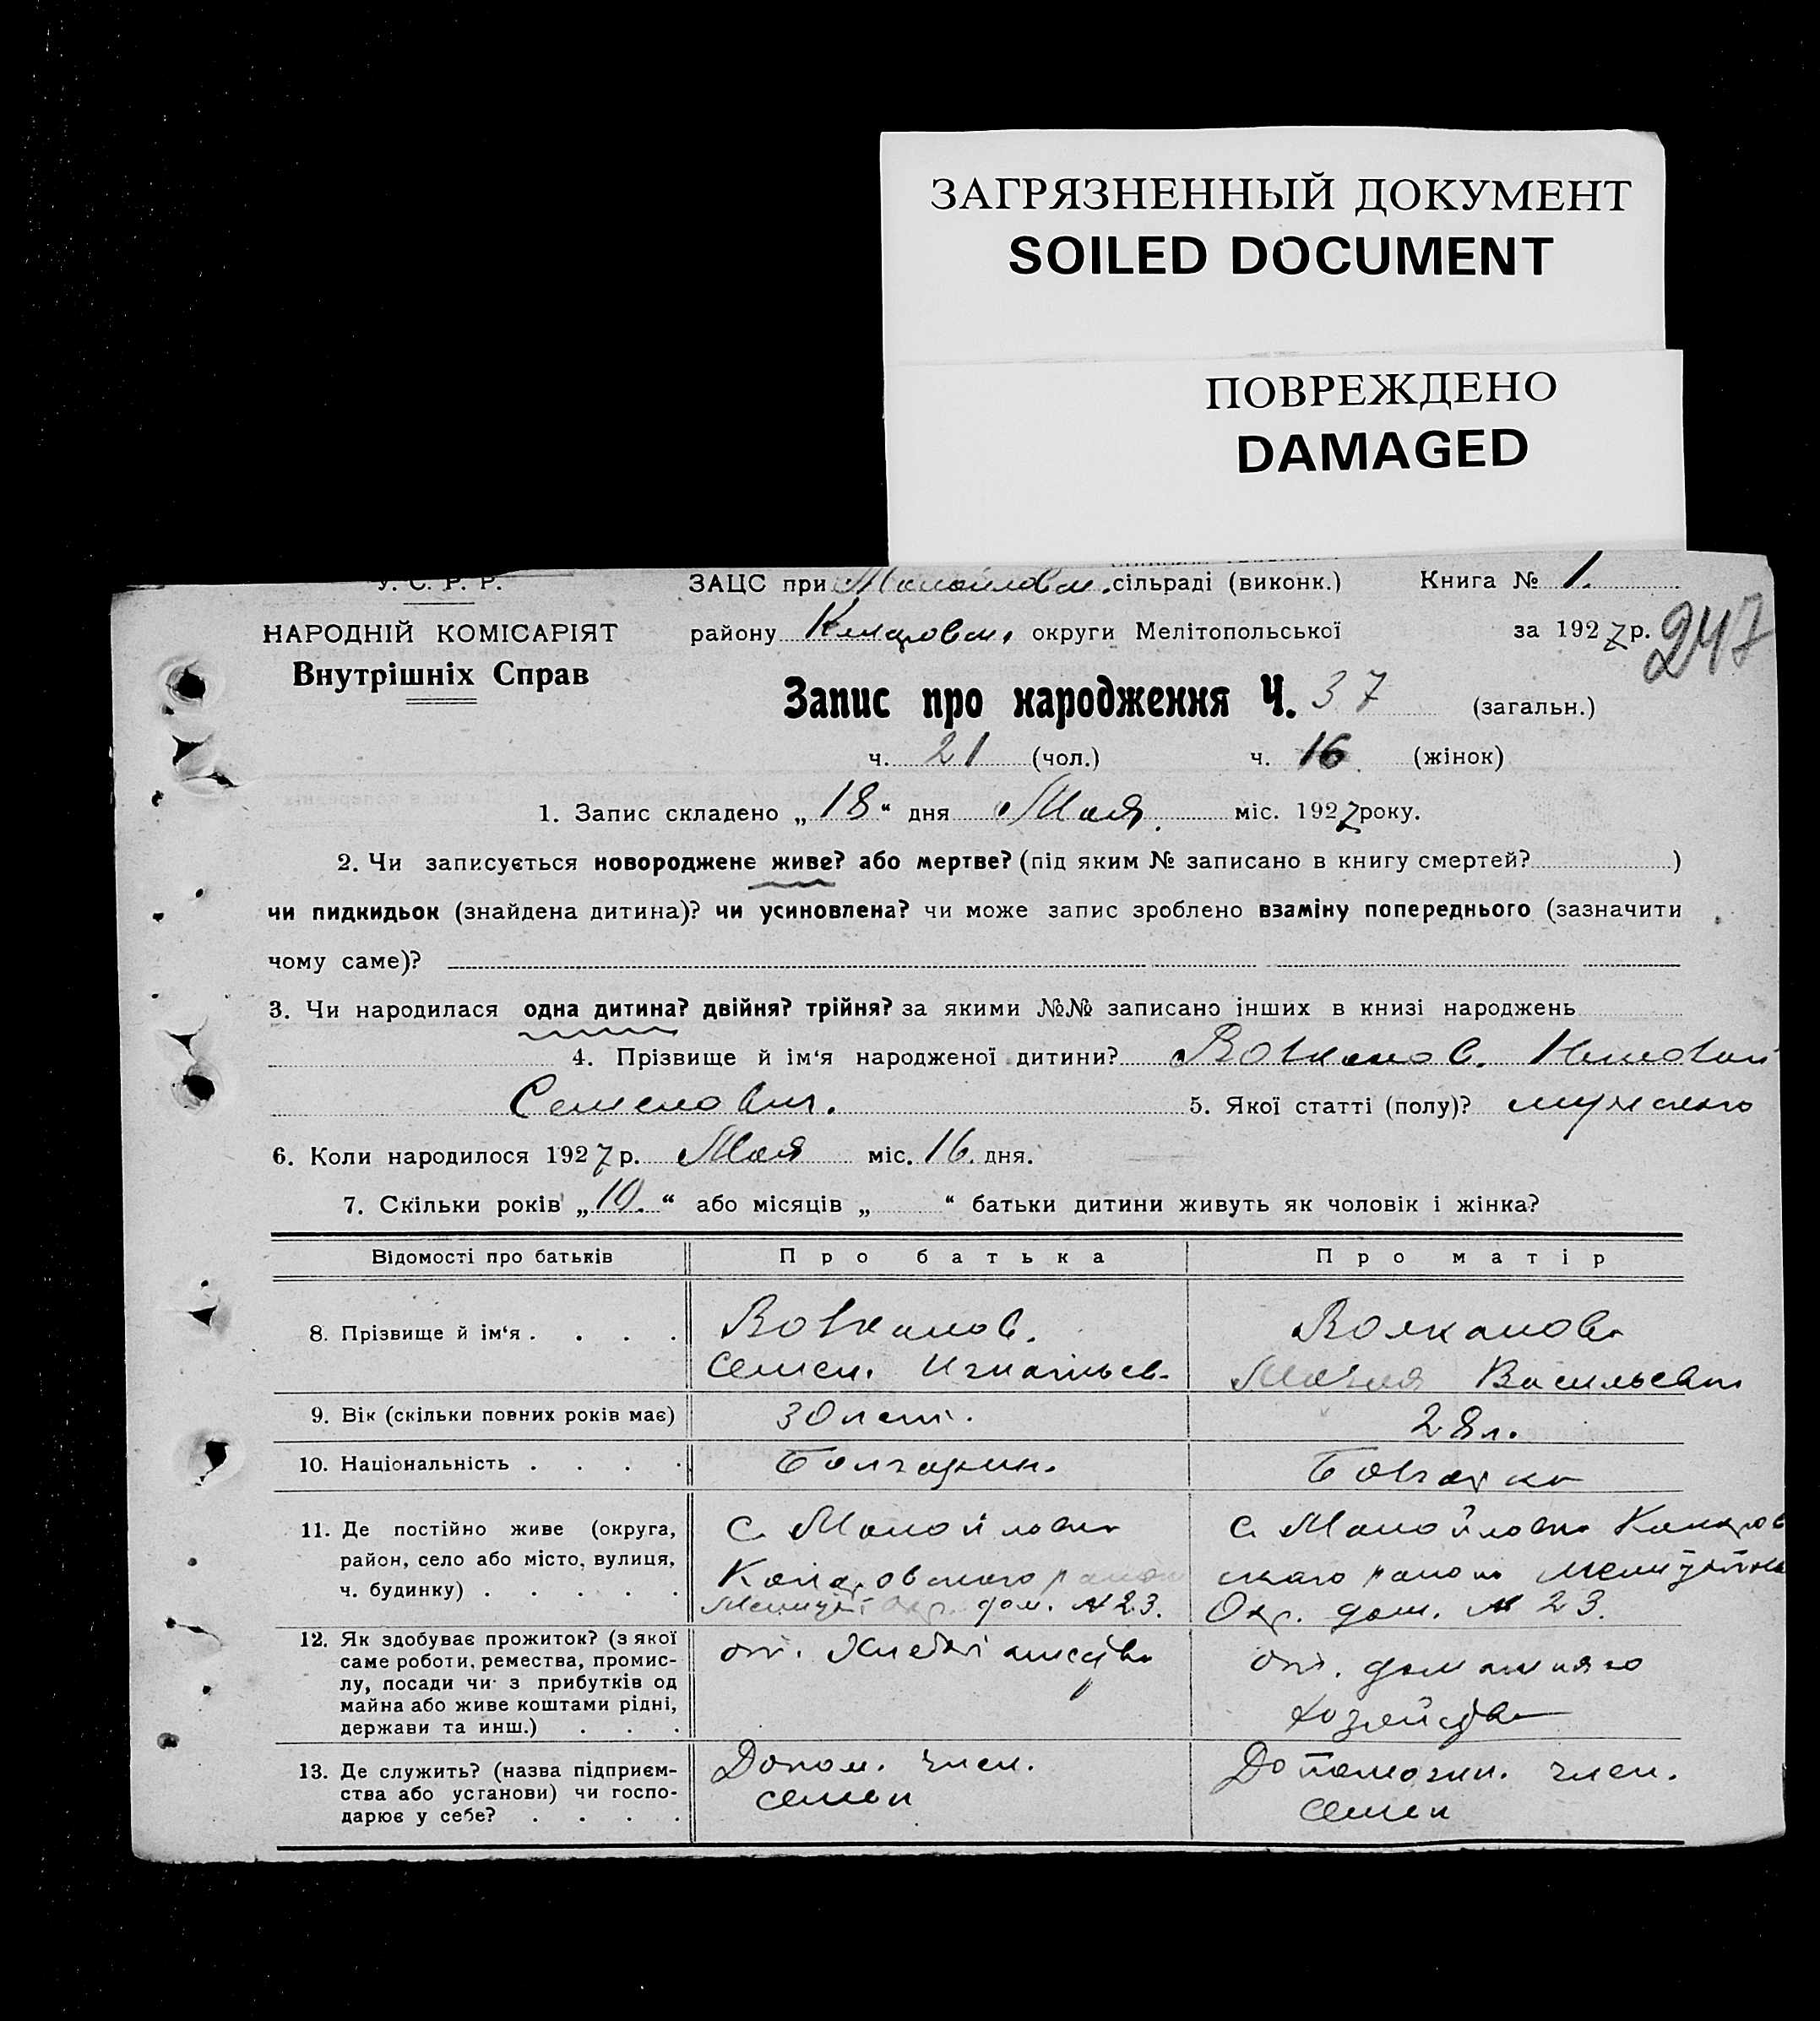 ЗАГРЯЗНЕННЫЙ ДОКУМЕНТ
SOILED DOCUMENT
ПОВРЕЖДЕНО
DAMAGED
У. С. Р. Р.
ЗАЦС при Манойловск. сільраді (виконк.) Книга № 1.
НАРОДНІЙ КОМІСАРІЯТ
району округи Мелітопольської за 1927 р. 247
Внутрішніх Справ
Запис про народження Ч. 37 (загальн.)
ч. 21 (чол.) ч. 16 (жінок)
1. Запис складено „18“ дня Мая міс. 1927 року.
2. Чи записується новороджене живе? або мертве? (під яким № записано в книгу смертей? )
чи пидкидьок (знайдена дитина)? чи усиновлена? чи може запис зроблено взаміну попереднього (зазначити
чому саме)?
3. Чи народилася одна дитина? двійня? трійня? за якими №№ записано інших в книзі народжень
4. Прізвище й ім‘я народженої дитини? Волканов. Николай
Семенович. 5. Якої статті (полу)? мужского
6. Коли народилося 1927 р. Мая міс. 16. дня.
7. Скільки років „10.“ або місяців „ “ батьки дитини живуть як чоловік і жінка?
Відомості про батьків Про батька Про матір
8. Прізвище й ім‘я . . . . Волканов. Волканова
Семен. Игнатьев. Мария Васильевн
9. Вік (скільки повних років має) 30 лет. 28 л.
10. Національність . . . . Болгарин. Болгарка
11. Де постійно живе (округа, с. Манойловка с. Манойловка Коларов
район, село або місто, вулиця, Коларовского района ского района
ч. будинку) . . . . . дом. № 23. Окр. дом. № 23.
12. Як здобуває прожиток? (з якої от. Хлебопашества от. домашняго
саме роботи, ремества, промис-
лу, посади чи з прибутків од
майна або живе коштами рідні, хозяйства
держави та инш.) . . .
13. Де служить? (назва підприєм- Допом. член. Допоможн. член.
ства або установи) чи госпо- семьи семьи
дарює у себе? . . . .